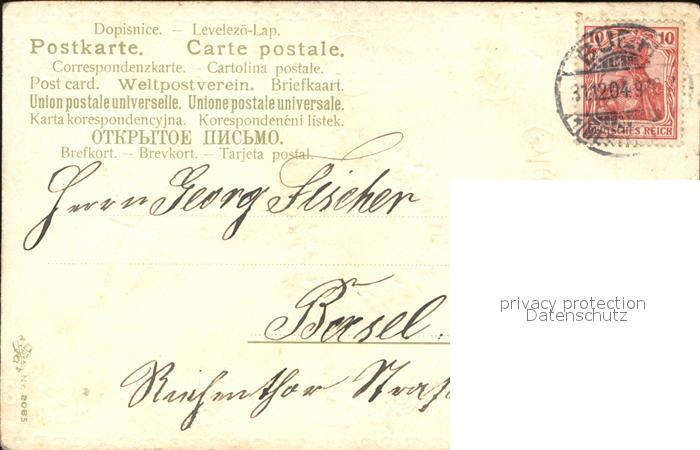 Dopisnice. – Levelezö-Lap.
Postkarte. Carte postale.
Correspondenzkarte. – Cartolina postale.
Post card. Weltpostverein. Briefkaart.
Union postale universelle. Unione postale universale.
Karta korespondencyjna. Korespondenční lístek.
ОТКРЫТОЕ ПИСЬМО.
Brefkort. – Brevkort. – Tarjeta postal.
10 10
31.12.04.9
DEUTSCHES REICH
Herrn Georg Fischer
privacy protection
Datenschutz
Basel.
Riehenthor Straß
Nr. 2085